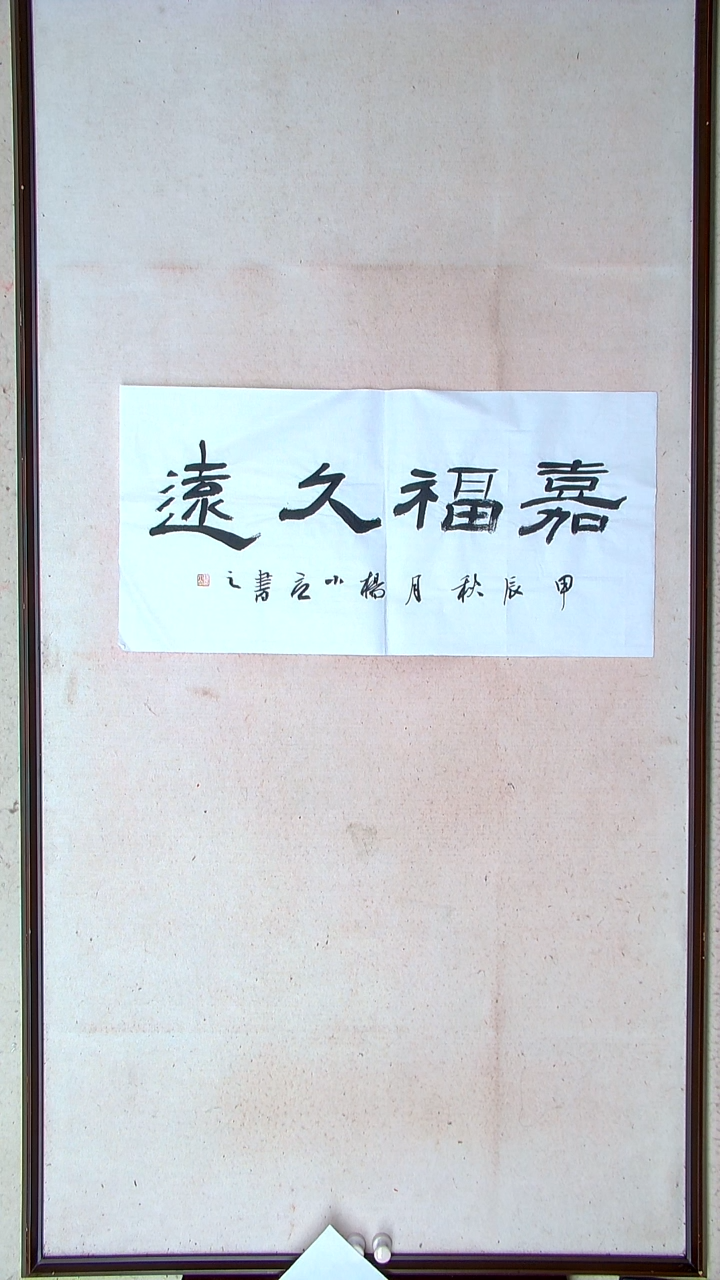 嘉福久遠
甲辰秋月楊小言書之